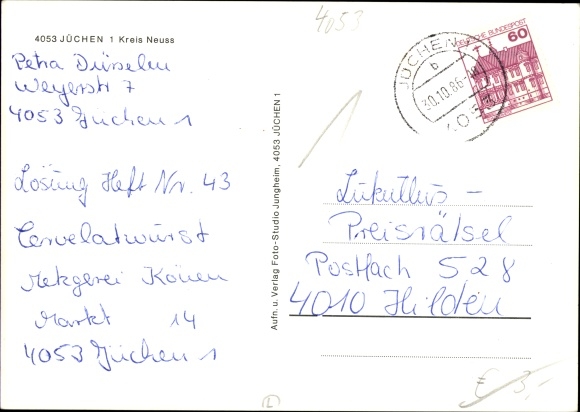 4053
4053 JÜCHEN 1 Kreis Neuss
Petra Dürselen
Weyerstr 7
4053 Jüchen 1
Lösung Heft Nr. 43
Cervelatwurst
Metzgerei Könen
Markt 14
4053 Jüchen 1
Aufn. u. Verlag Foto-Studio Jungheim, 4053 JÜCHEN 1
DEUTSCHE BUNDESPOST
60
JÜCHEN
b
30.10.86
4053
Lukullus -
Preisrätsel
Postfach 528
4010 Hilden
€ 3,-
L